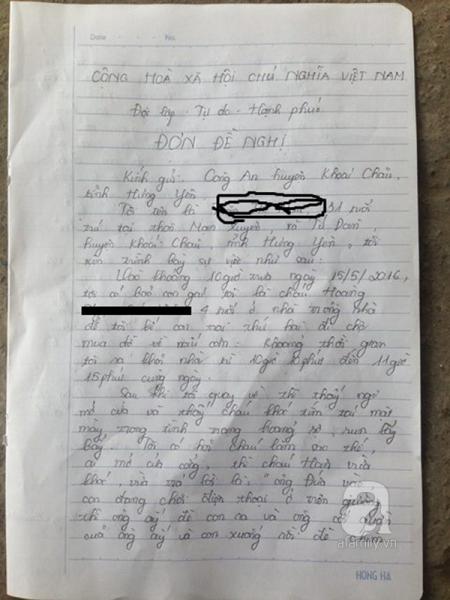 Date No.
CỘNG HOÀ XÃ HỘI CHỦ NGHĨA VIỆT NAM
Độc lập - Tự do - Hạnh phúc
ĐƠN ĐỀ NGHỊ
Kính gửi: Công An huyện Khoái Châu,
tỉnh Hưng Yên
Tôi tên là 31 tuổi
trú tại thôn Nam xuyên, xã Tứ Dân
huyện Khoái Châu, tỉnh Hưng Yên, tôi
xin trình bày sự việc như sau:
Vào khoảng 10 giờ trưa ngày 15/5/2016,
tôi có bảo con gái tôi là cháu Hoàng
4 tuổi ở nhà trông nhà
để tôi bế con trai thứ hai đi chợ
mua đồ về nấu cơm. Khoảng thời gian
tôi ra khỏi nhà từ 10 giờ 10 phút đến 11 giờ
15 phút cùng ngày.
Sau khi tôi quay về thì thấy ngõ
mở cửa và thấy cháu khóc tím tái mặt
mày trong tình trạng hoảng sợ, run lẩy
bẩy. Tôi có hỏi cháu làm sao thế
ai mở cửa cổng, thì cháu vừa
khóc, vừa trả lời là: "ông Đưa vào
con đang chơi điện thoại ở trên giường
thì ông ấy đè con ra và ông cởi quần
của ông ấy và con xuống rồi đè
afamily.vn
HỒNG HÀ